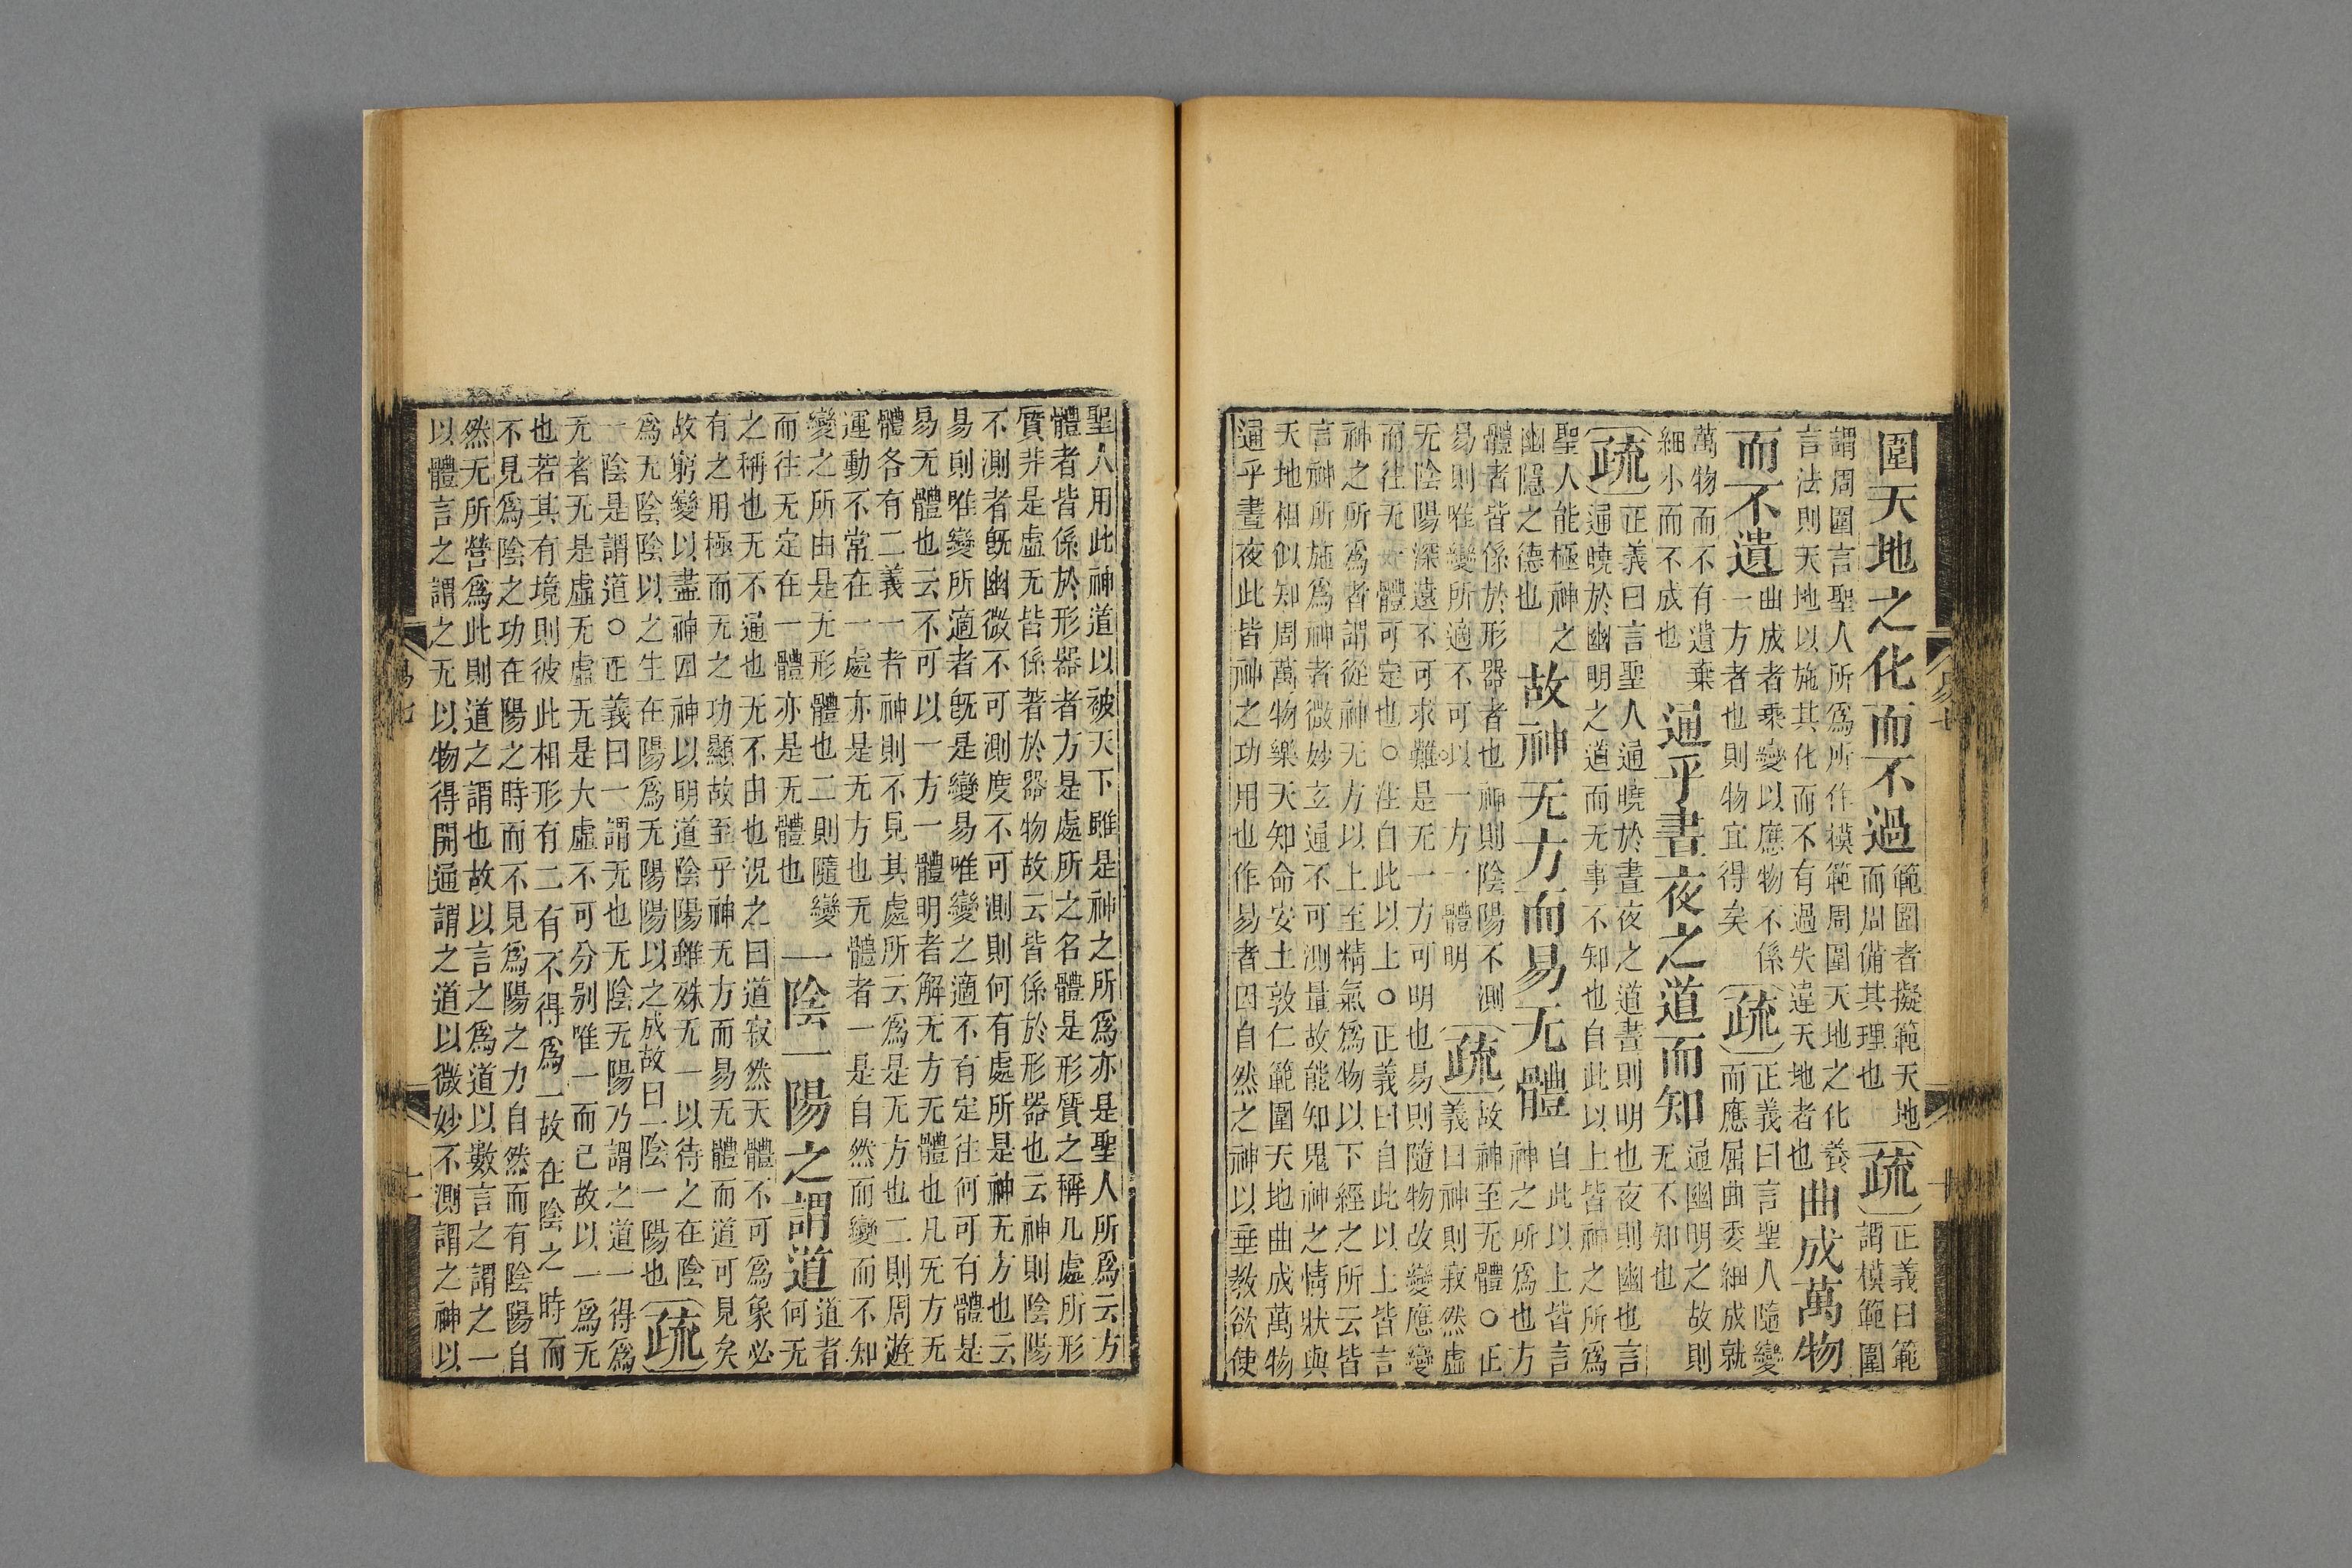 圍天地之化而不過範圍者擬範天地而周備其理也疏正義曰範謂模範圍
謂周圍言聖人所爲所作模範周圍天地之化養言法則天地以施其化而不有過失違天地者也曲成萬物
而不遺曲成者乗變以應物不係一方者也則物宜得矣疏正義曰言聖人隨變而應屈曲委細成就
萬物而不有遺棄細小而不成也通乎晝夜之道而知通幽明之故則无不知也
疏正義曰言聖人通曉於晝夜之道晝則明也夜則幽也言通曉於幽明之道而无事不知也自此以上皆神之所爲
聖人能極神之幽隱之德也故神无方而易无體自此以上皆言神之所爲也方
體者皆係於形器者也神則陰陽不測易則唯變所適不可以一方一體明疏故神至无體○正義曰神則寂然虛
无陰陽深遠不可求難是无一方可明也易則隨物改變應變而往无一體可定也○注自此以上○正義曰自此以上皆言
神之所爲者謂從神无方以上至精氣爲物以下經之所云皆言神所施爲神者微妙玄通不可測量故能知鬼神之情狀與
天地相似知周萬物樂天知命安土敦仁範圍天地曲成萬物通乎晝夜此皆神之功用也作易者因自然之神以垂教欲使
聖人用此神道以被天下雖是神之所爲亦是聖人所爲云方
體者皆係於形器者方是處所之名體是形質之稱凡處所形
質非是虛无皆係著於器物故云皆係於形器也云神則陰陽
不測者旣幽微不可測度不可測則何有處所是神无方也云
易則唯變所適者旣是變易唯變之適不有定往何可有體是
易无體也云不可以一方一體明者解无方无體也凡无方无
體各有二義一者神則不見其處所云爲是无方也二則周遊
運動不常在一處亦是无方也无體者一是自然而變而不知
變之所由是无形體也二則隨變而往无定在一體亦是无體也一陰一陽之謂道道者何无
之稱也无不通也无不由也況之曰道寂然天體不可爲象必有之用極而无之功顯故至乎神无方而易无體而道可見矣
故窮變以盡神因神以明道陰陽雖殊无一以待之在陰爲无陰陰以之生在陽爲无陽陽以之成故曰一陰一陽也疏
一陰是謂道○正義曰一謂无也无陰无陽乃謂之道一得爲
无者无是虛无虛无是大虛不可分別唯一而已故以一爲无
也若其有境則彼此相形有二有不得爲一故在陰之時而
不見爲陰之功在陽之時而不見爲陽之力自然而有陰陽自
然无所營爲此則道之謂也故以言之爲道以數言之謂之一
以體言之謂之无以物得開通謂之道以微妙不測謂之神以
易七
十一